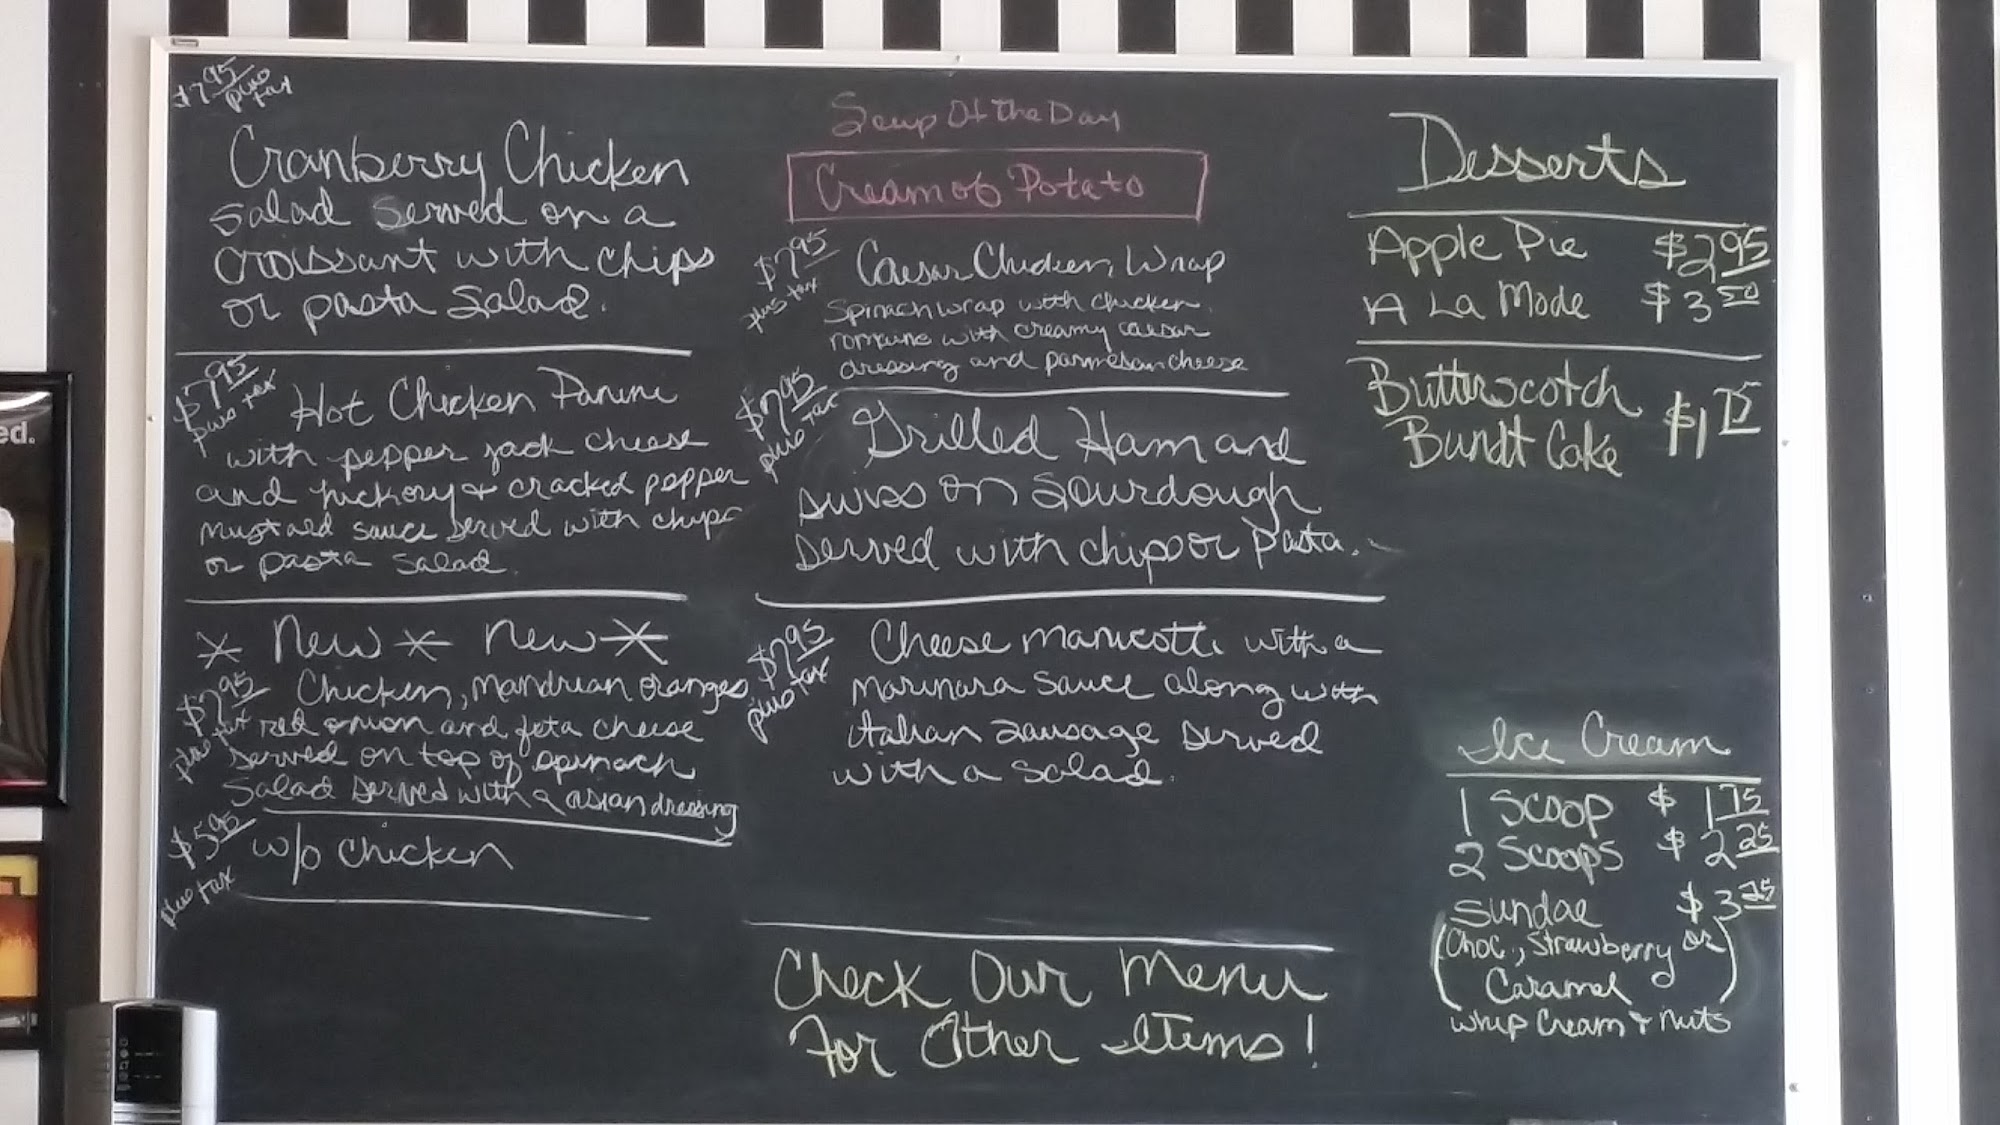 $7.95 plus tax
Cranberry Chicken
salad served on a
croissant with chips
or pasta salad.
$7.95 plus tax
Hot Chicken Panini
with pepper jack cheese
and hickory & cracked pepper
mustard sauce served with chips
or pasta salad.
* New * New *
$7.95 plus tax
Chicken, Mandrian oranges
red onion and feta cheese
served on top of spinach
salad served with a asian dressing
$5.95 plus tax
w/o chicken
Soup Of the Day
Cream of Potato
$7.95 plus tax
Caesar Chicken Wrap
Spinach wrap with chicken
romaine with creamy caesar
dressing and parmesan cheese
$7.95 plus tax
Grilled Ham and
swiss on Sourdough
served with chips or Pasta.
$7.95 plus tax
Cheese manicotti with a
marinara sauce along with
italian sausage served
with a salad.
Check Our Menu
For Other Items!
Desserts
Apple Pie $2.95
A La Mode $3.50
Butterscotch
Bundt Cake $1.75
Ice Cream
1 Scoop $1.75
2 Scoops $2.25
Sundae $3.25
(Choc., Strawberry or
Caramel)
whip Cream & nuts
ed.